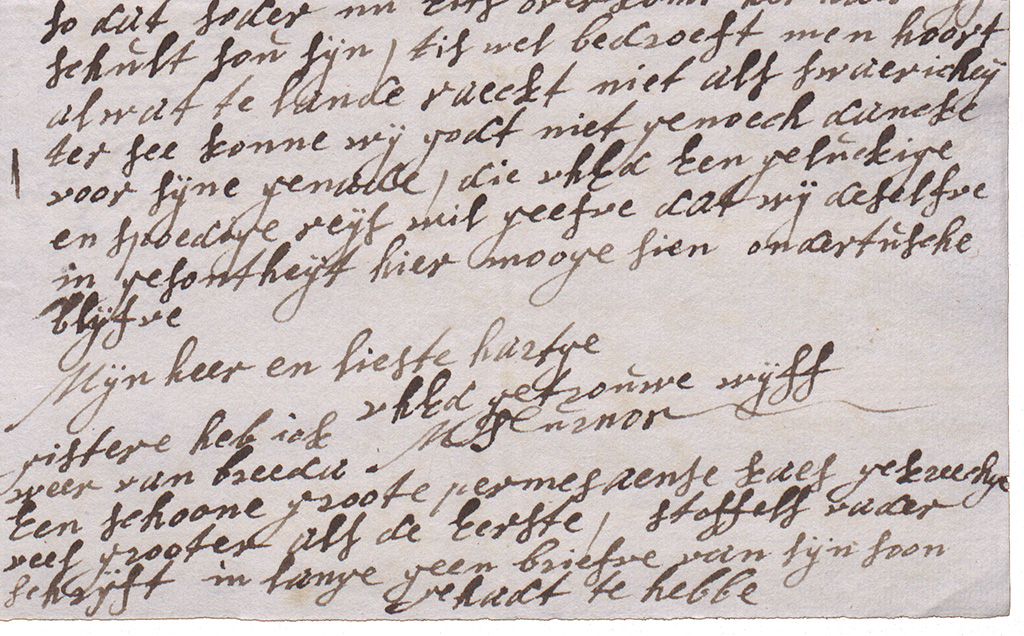 so dat soder nu
schult sou sijn / tis wel bedroeft men hoort
al wat te lande raeckt niet als swaericheij
ter see konne wij godt niet genoech dancke
voor sijne genade / die uhEd Een geluckige
en spoedige reijs wil geefve dat wij deselfve
in gesontheijt hier mooge sien ondertusche
blijfve
Mijn heer en liefste hartge
uhEd getrouwe wijff
M
gistere heb ick
weer van breeda
Een schoone groote permesaense kaes gekreechge
veel grooter als de Eerste / stoffels vader
schrijft in lange geen briefve van sijn soon
gehadt te hebbe